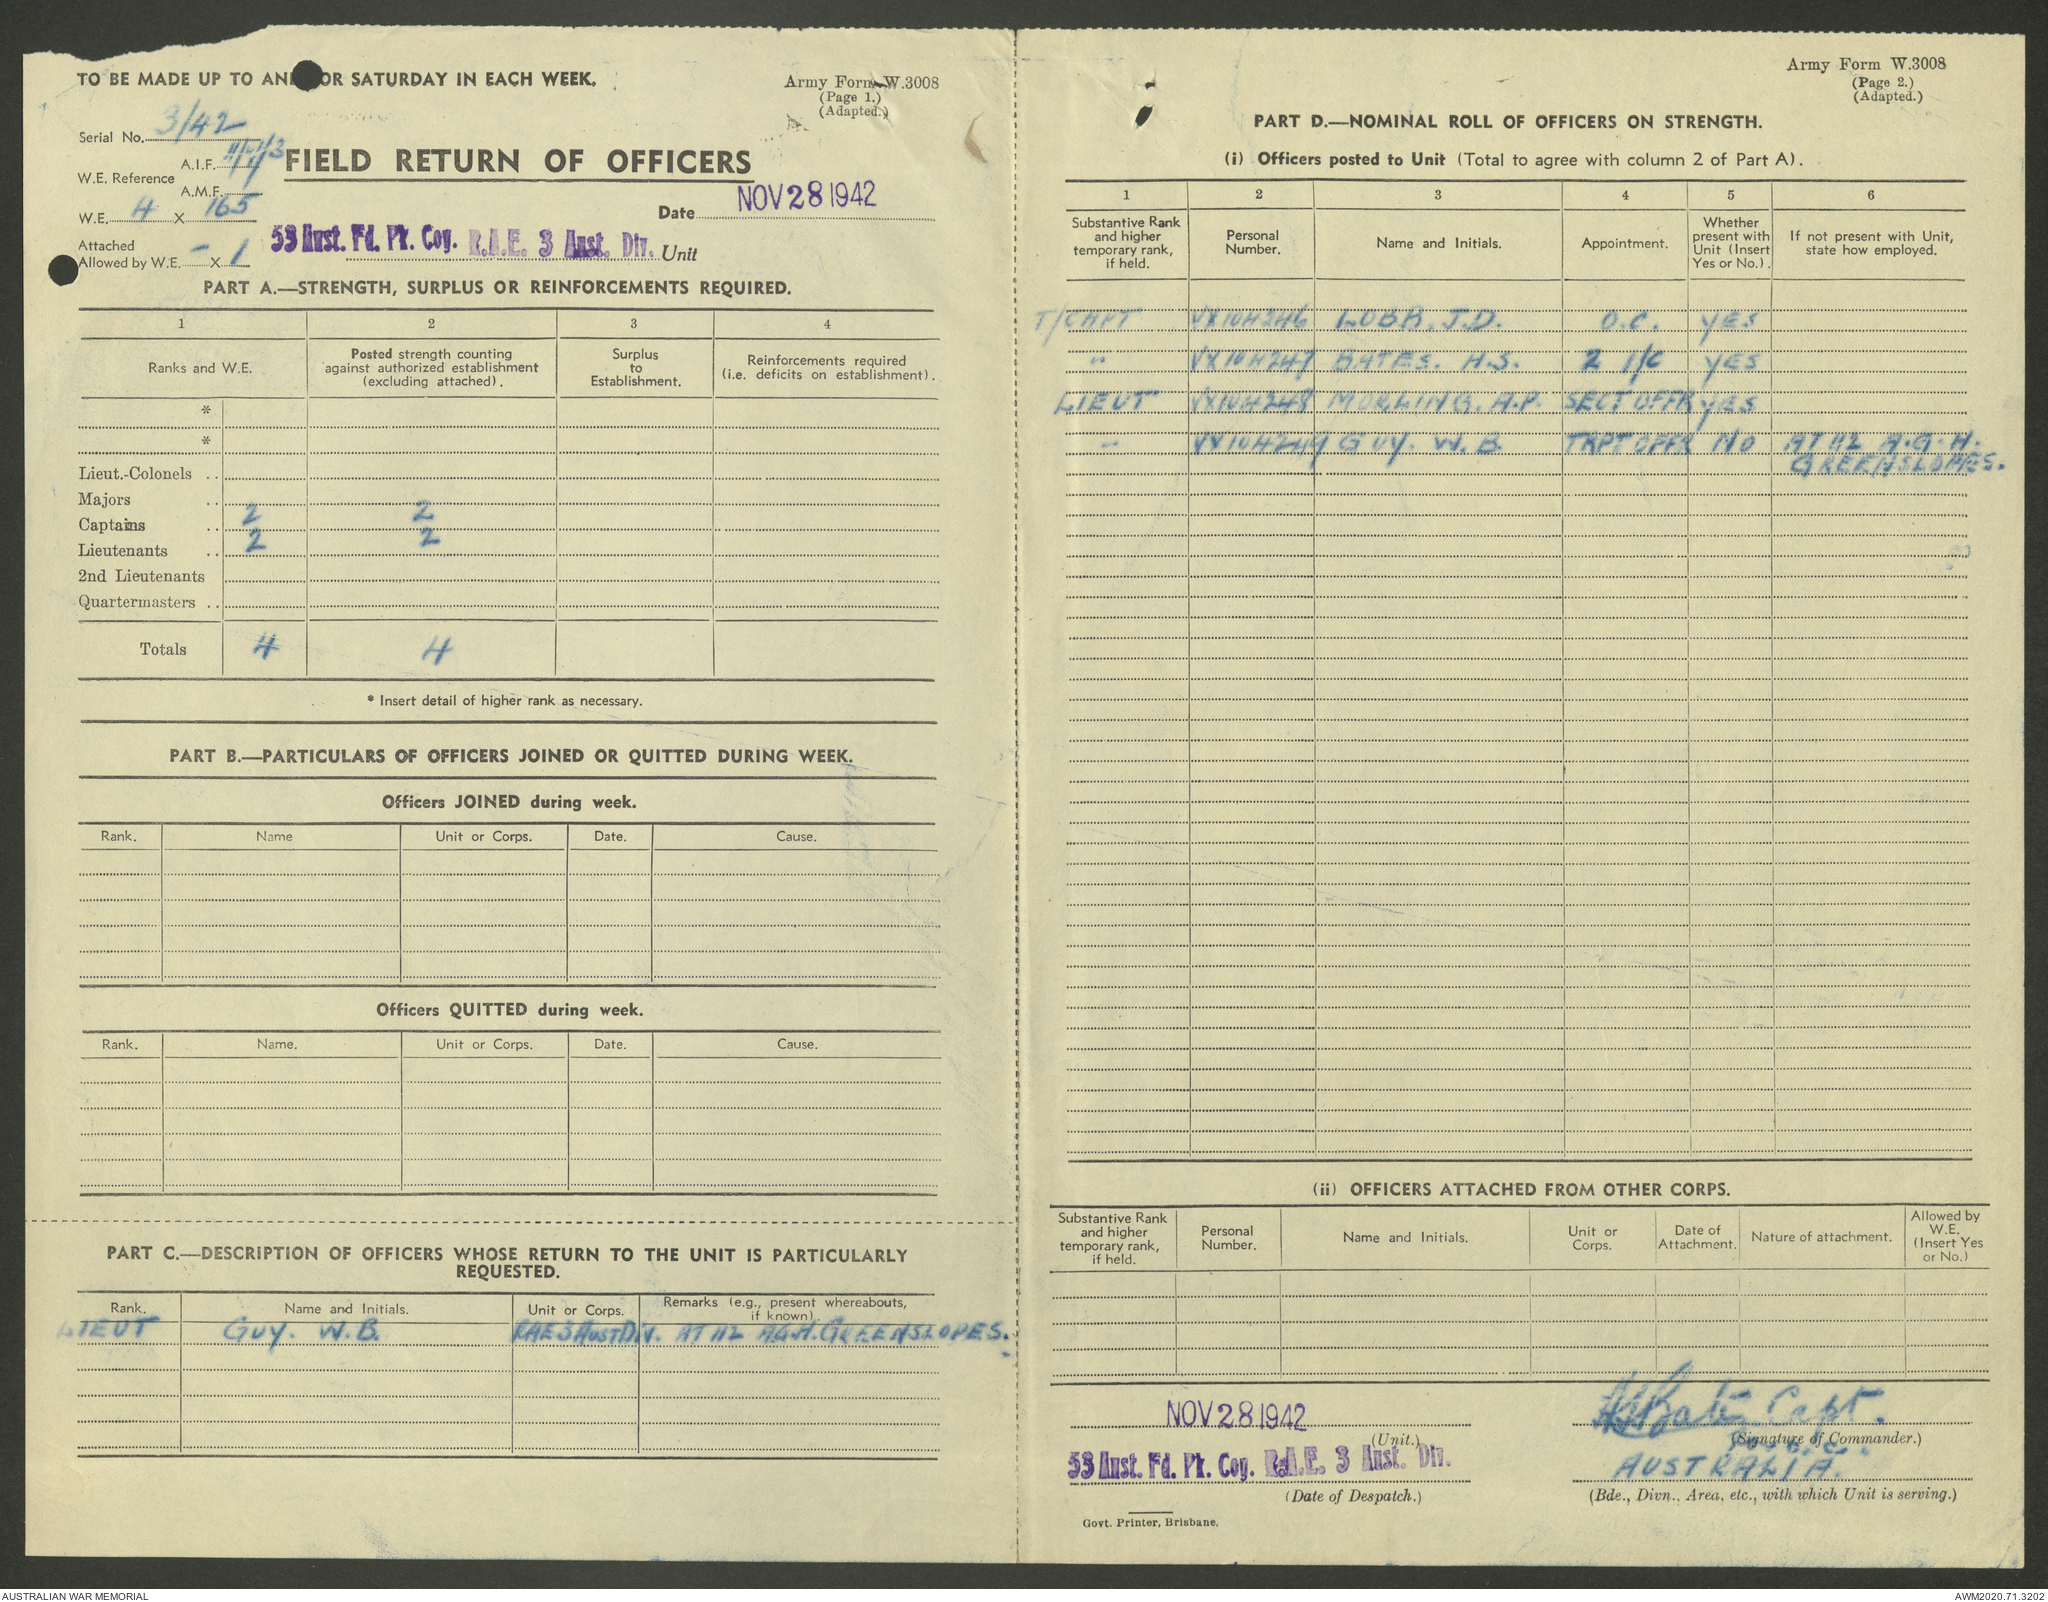 TO BE MADE UP TO AND FOR SATURDAY IN EACH WEEK.
Army Form W.3008
(Page 1.)
(Adapted.)
Serial No. 3/42
W.E. Reference
A.I.F.
A.M.F.
W.E. 4 X 165
Attached
Allowed by W.E. - X 1
FIELD RETURN OF OFFICERS
Date NOV 28 1942
53 Aust. Fd. Pk. Coy. R.A.E. 3 Aust. Div. Unit
PART A.—STRENGTH, SURPLUS OR REINFORCEMENTS REQUIRED.
1 2 3 4
Ranks and W.E.
Posted strength counting
against authorized establishment
(excluding attached).
Surplus
to
Establishment.
Reinforcements required
(i.e. deficits on establishment).
*
*
Lieut.-Colonels ..
Majors ..
Captains .. 2 2
Lieutenants .. 2 2
2nd Lieutenants
Quartermasters ..
Totals 4 4
* Insert detail of higher rank as necessary.
PART B.—PARTICULARS OF OFFICERS JOINED OR QUITTED DURING WEEK.
Officers JOINED during week.
Rank. Name Unit or Corps. Date. Cause.
Officers QUITTED during week.
Rank. Name. Unit or Corps. Date. Cause.
PART C.—DESCRIPTION OF OFFICERS WHOSE RETURN TO THE UNIT IS PARTICULARLY
REQUESTED.
Rank. Name and Initials. Unit or Corps. Remarks (e.g., present whereabouts,
if known)
LIEUT GUY. W.B. RAE 3 AUST DIV. AT 112 A.G.H. GREENSLOPES.
Army Form W.3008
(Page 2.)
(Adapted.)
PART D.—NOMINAL ROLL OF OFFICERS ON STRENGTH.
(i) Officers posted to Unit (Total to agree with column 2 of Part A).
1 2 3 4 5 6
Substantive Rank
and higher
temporary rank,
if held.
Personal
Number.
Name and Initials.
Appointment.
Whether
present with
Unit (Insert
Yes or No.).
If not present with Unit,
state how employed.
T/CAPT VX104246 LOBB. J.D. O.C. YES
" VX104247 BATES. H.S. 2 I/C YES
LIEUT VX104248 MORLING. A.P. SECT OFFR YES
" VX104249 GUY. W.B. TRPT OFFR NO AT 112 A.G.H.
GREENSLOPES.
(ii) OFFICERS ATTACHED FROM OTHER CORPS.
Substantive Rank
and higher
temporary rank,
if held.
Personal
Number.
Name and Initials.
Unit or
Corps.
Date of
Attachment.
Nature of attachment.
Allowed by
W.E.
(Insert Yes
or No.)
NOV 28 1942
(Unit.)
53 Aust. Fd. Pk. Coy. R.A.E. 3 Aust. Div.
(Date of Despatch.)
Govt. Printer, Brisbane.
HSBates Capt.
(Signature of Commander.)
AUSTRALIA.
(Bde., Divn., Area, etc., with which Unit is serving.)
AUSTRALIAN WAR MEMORIAL
AWM2020.71.3202